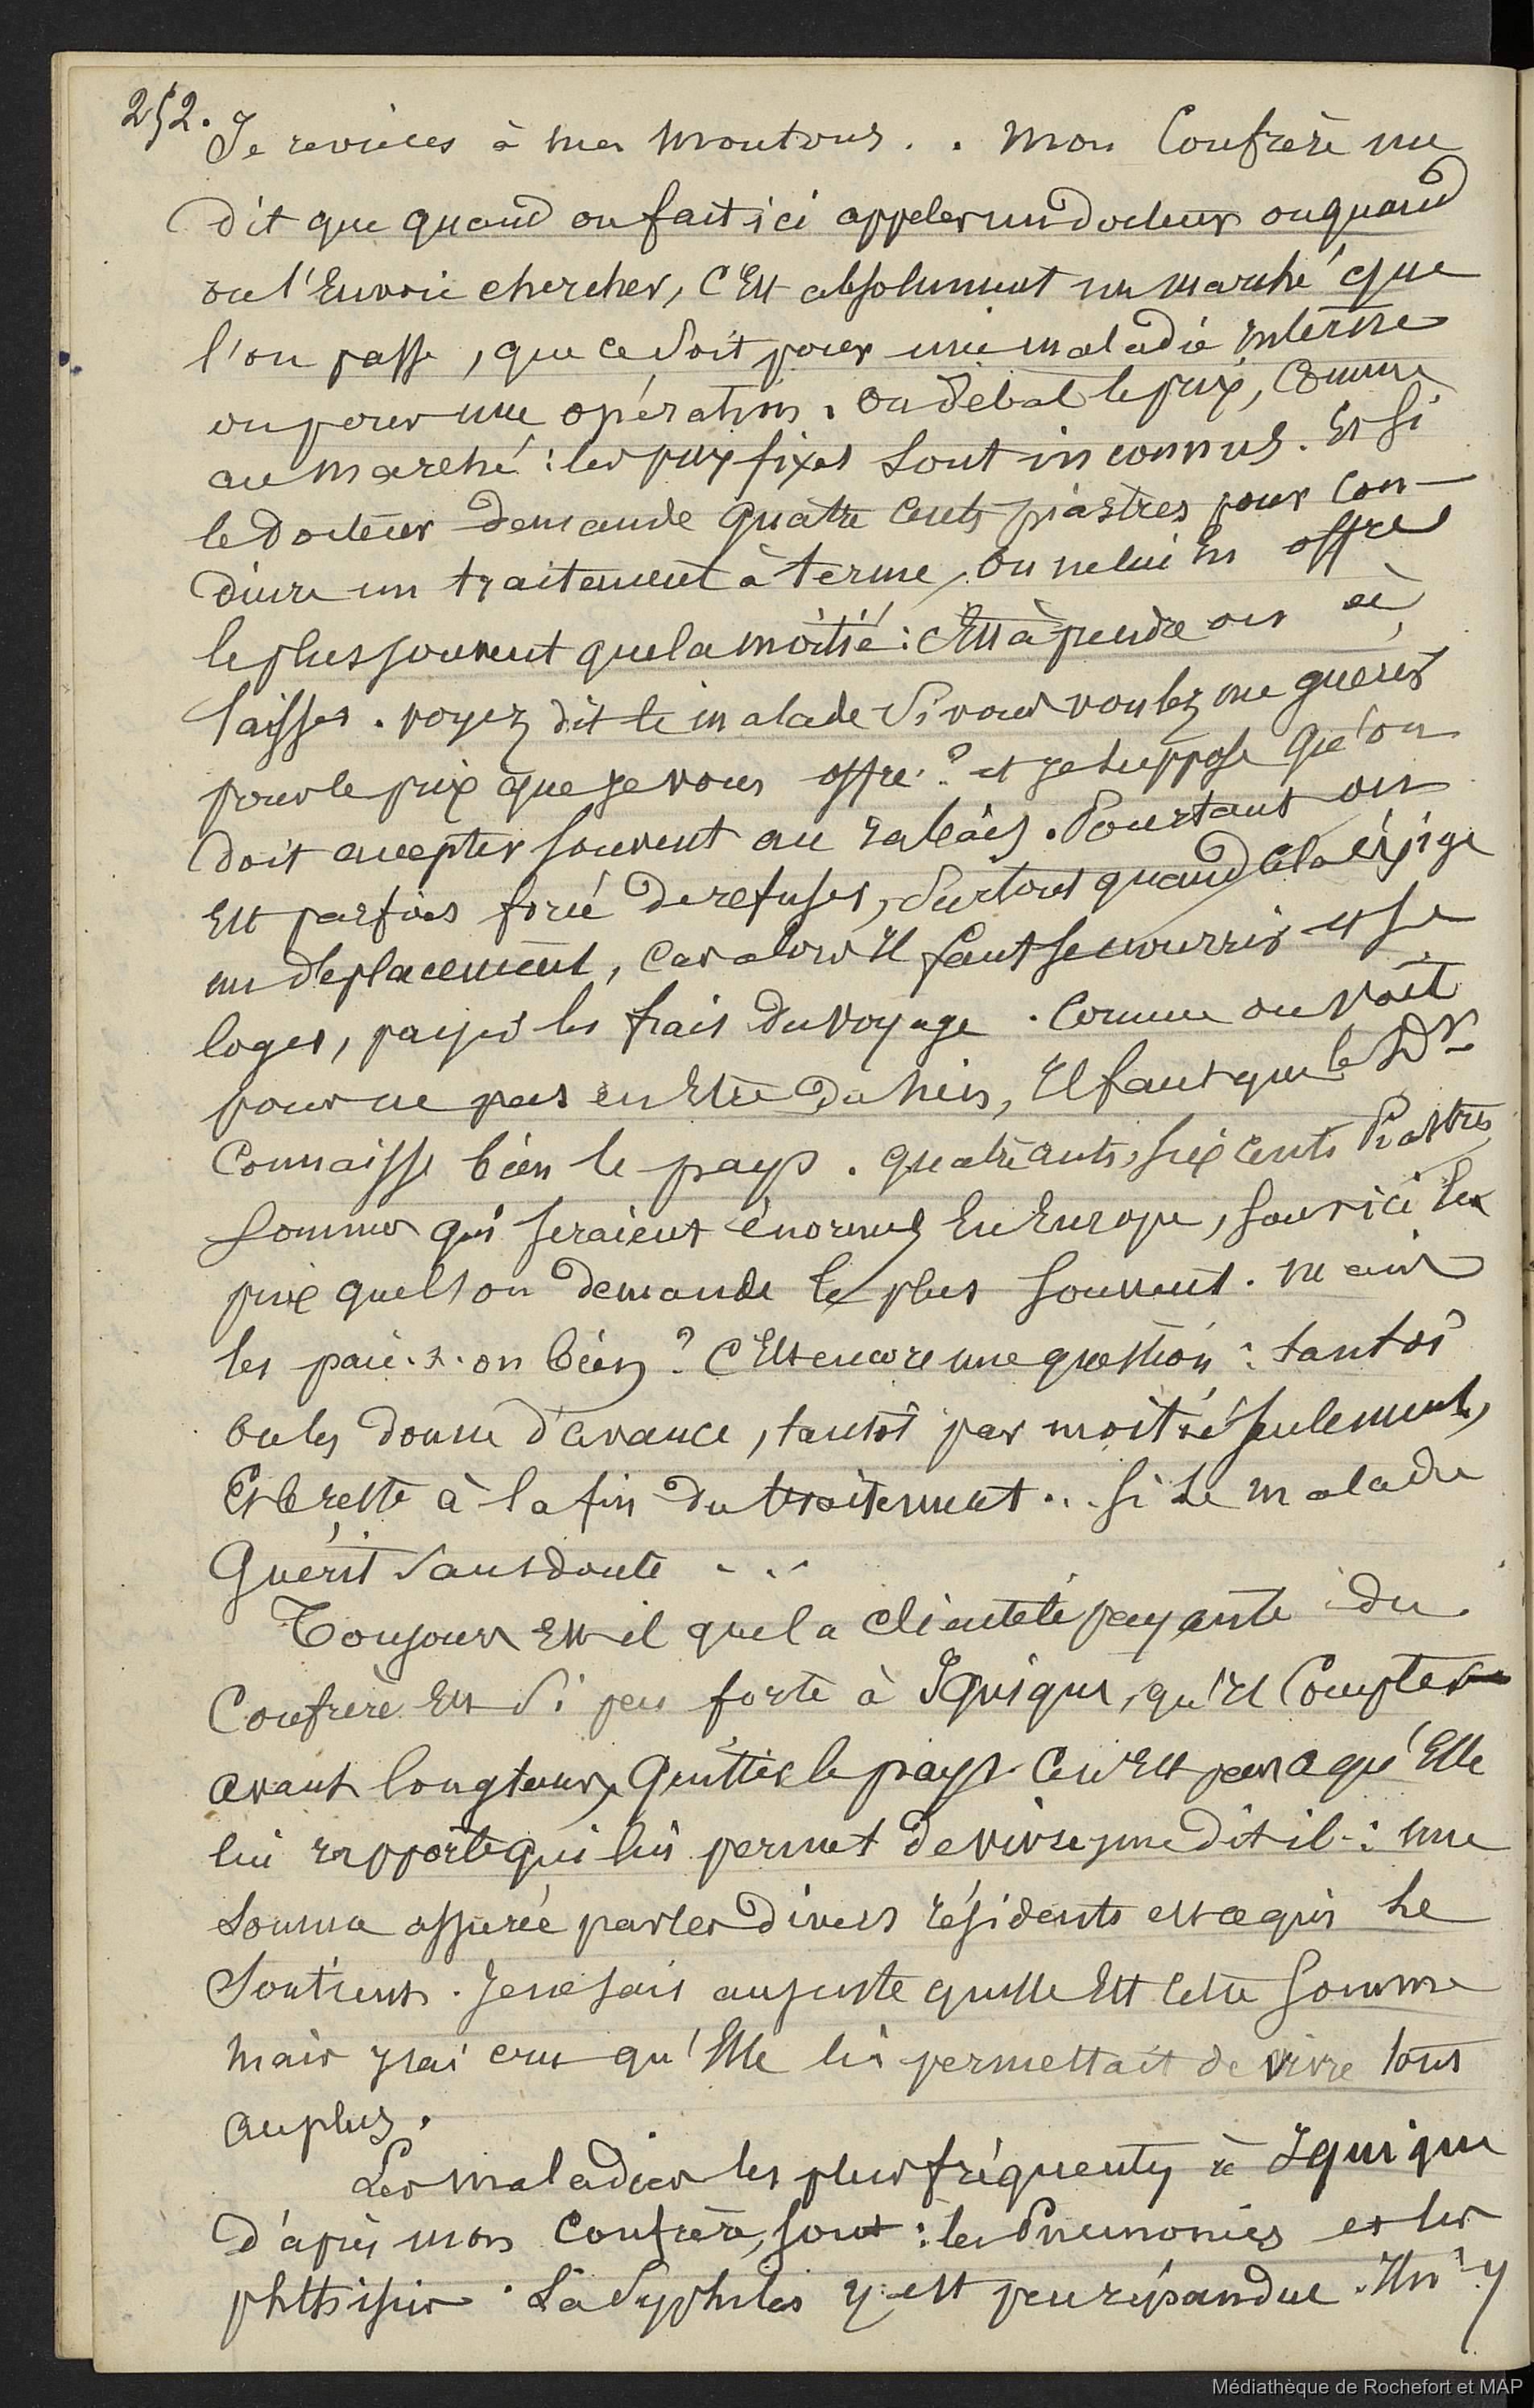 252.
Je reviens à mes moutons . . Mon Confrère me
dit que quand on fait ici appeler un docteur ou quand
on l'Envoie chercher, C'Est absolument un marché que
l'on passe, que ce soit pour une maladie interne
ou pour une opération. On débat le prix, Comme
au marché : les prix fixes sont inconnus. Et si
le docteur demande quatre cents piastres pour Con-
duire un traitement à terme, on ne lui en offre
le plus souvent que la moitié : C'Est à prendre ou à
laisser. Voyez dit le malade si vous voulez me guérir
pour le prix que je vous offre ? et je suppose qu'on
doit accepter souvent au rabais. Pourtant on
Est parfois forcé de refuser, surtout quand cela exige
un déplacement, Car alors Il faut se nourrir et se
loger, payer les frais du voyage. Comme on voit
pour ne pas en Etre du sien, Il faut que le Dr
Connaisse bien le pays. quatre cents, six cents Piastres
Sommes qui seraient énormes En Europe, sont ici les
prix quels on demande le plus souvent. Mais
les paie-t-on bien ? C'Est encore une question : tantôt
on les donne d'avance, tantôt par moitié seulement,
Et le reste à la fin du traitement .. si le malade
Guérit sans doute ...
Toujours Est-il que la clientèle payante du
Confrère Est si peu forte à Iquique, qu'Il Compte
avant longtemps, Quitter le pays. Ce n'Est pas ce qu'Elle
lui rapporte qui lui permet de vivre, me dit-il : une
somme assurée par les divers résidents est ce qui le
Soutient. Je ne sais au juste quelle Est cette somme
mais j'ai cru qu'Elle lui permettait de vivre tout
au plus.
Les maladies les plus fréquentes à Iquique
d'après mon Confrère, sont : les Pneumonies et les
phthisies. La Syphilis y est peu répandue. Il n'y
Médiathèque de Rochefort et MAP